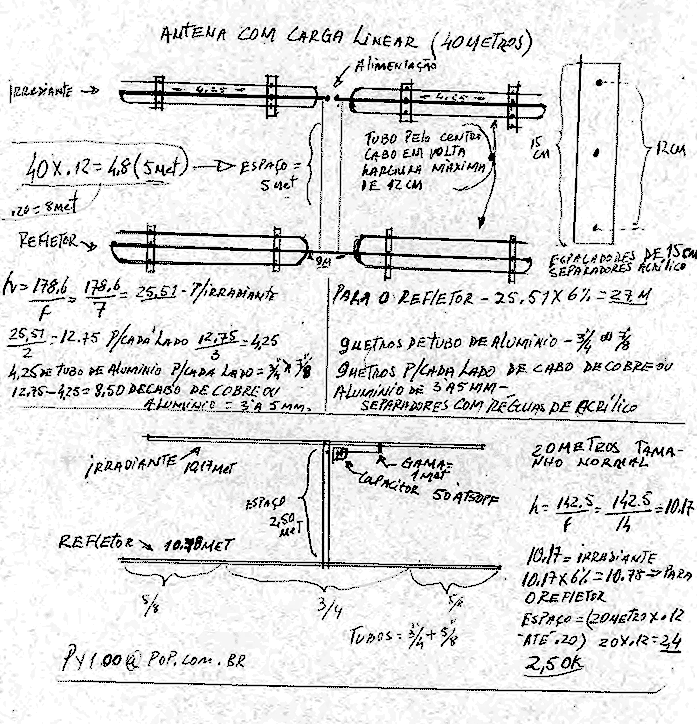 ANTENA COM CARGA LINEAR (40 METROS)
ALIMENTAÇÃO
IRRADIANTE
4,25
4,25
TUBO PELO CENTRO
CABO EM VOLTA
LARGURA MAXIMA
DE 12 CM
15
CM
12CM
40 X .12 = 4,8 (5 MET)
ESPAÇO =
5 MET
.20 = 8 MET
REFLETOR
9M
ESPAÇADORES DE 15 CM
SEPARADORES ACRÍLICO
= 178,6 / F = 178,6 / 7 = 25,51 - P/IRRADIANTE
25,51 / 2 = 12.75 P/CADA LADO 12,75 / 3 = 4,25
4,25 DE TUBO DE ALUMINIO P/CADA LADO = 3/4" X 7/8
12,75 - 4,25 = 8,50 DE CABO DE COBRE OU
ALUMINIO = 3 A 5 MM.
PARA O REFLETOR - 25,51 X 6% = 27 M
9 METROS DE TUBO DE ALUMINIO - 3/4" 7/8
9 METROS P/CADA LADO DE CABO DE COBRE OU
ALUMINIO DE 3 A 5 MM -
SEPARADORES COM RÉGUAS DE ACRÍLICO
IRRADIANTE 10,17 MET
GAMA =
1 MET
CAPACITOR 50 ATE 50 PF
ESPAÇO
2,50
MET
REFLETOR
5/8
3/4
5/8
TUBOS = 3/4" + 5/8"
20 METROS TAMA-
NHO NORMAL
h = 142,5 / F = 142.5 / 14 = 10.17
10.17 = IRRADIANTE
10.17 X 6% = 10.78 PARA
O REFLETOR
ESPAÇO = (20 METRO X .12
ATÉ .20) 20 X .12 = 2,4
2,50 K
PY1.00@POP.COM.BR